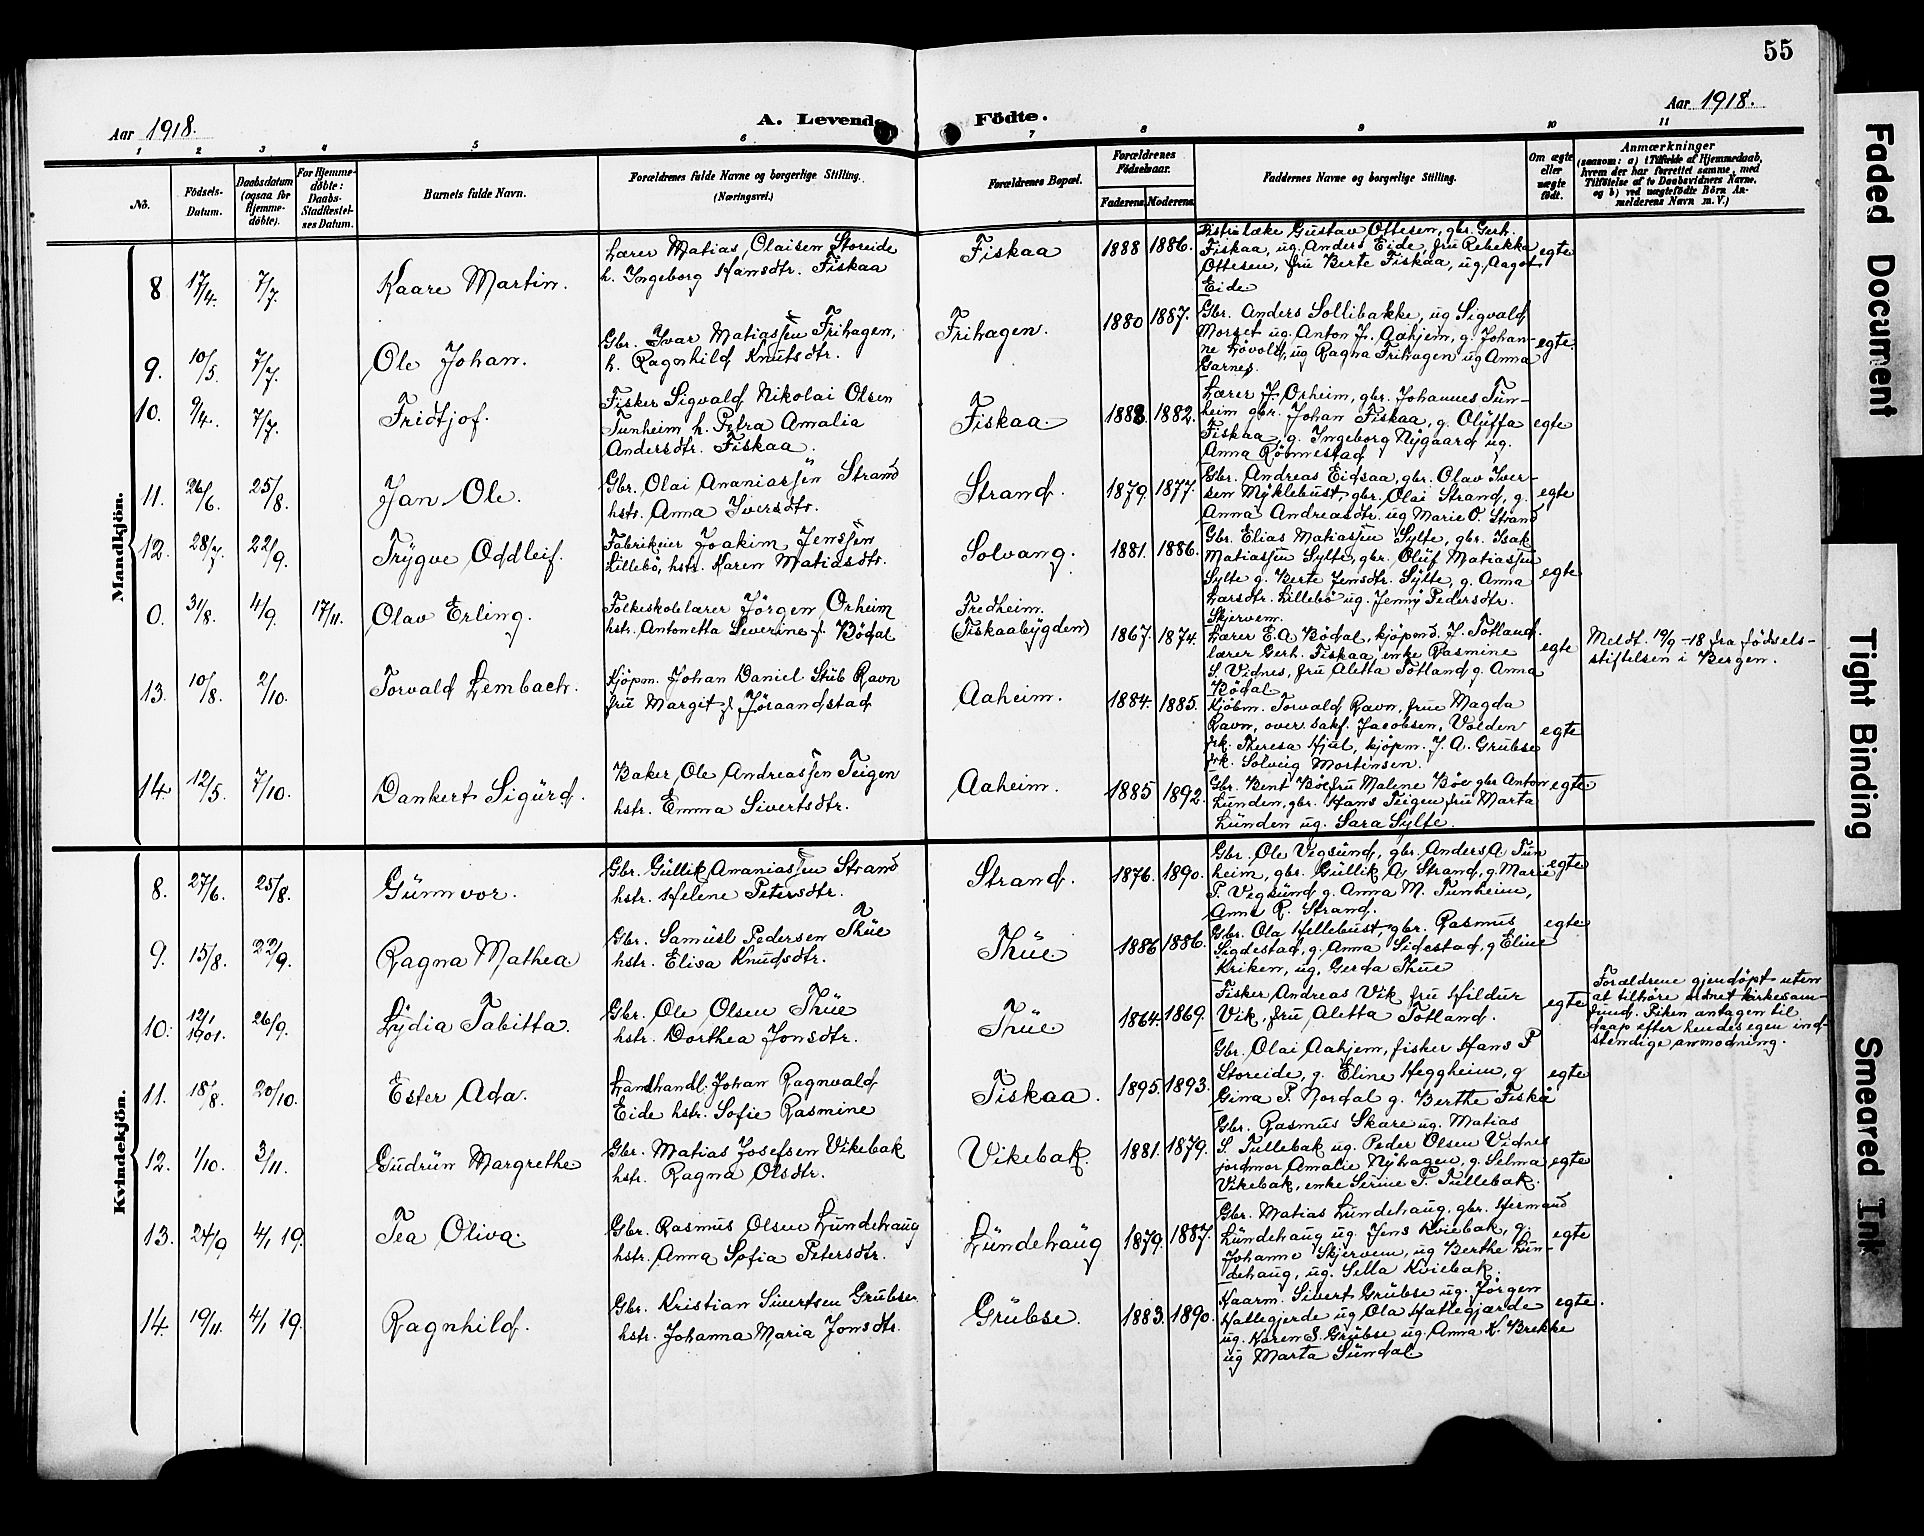 55
Aar 1918.
A. Levende Födte.
Aar 1918.
1 2 3 4 5 6 7 8 9 10 11
No.
Födsels-Datum.
Daabsdatum (ogsaa for Hjemmedöbte).
For Hjemmedöbte: Daabs-Stadfæstelses Datum.
Barnets fulde Navn.
Forældrenes fulde Navne og borgerlige Stilling.
(Næringsvei.)
Forældrenes Bopæl.
Forældrenes Födselsaar.
Faderens. Moderens.
Faddernes Navne og borgerlige Stilling.
Om ægte eller uægte födt.
Anmærkninger
(saasom: a) i Tilfælde af Hjemmedaab, hvem der har forrettet samme, med Tilföielse af to Daabsvidners Navne, og b) ved uægtefödte Börn Anmelderens Navn m. V.)
Mandkjön.
8 17/4. 7/7. Kaare Martin.
Lærer Matias Olaisen Storeide
h. Ingeborg Hansdtr. Fiskaa
Fiskaa 1888 1886.
Distriktslæke Gustav Ottesen, gbr. Gerh.
Fiskaa, ug. Anders Eide, fru Rebekka
Ottesen, fru Berte Fiskaa, ug. Aagot
Eide
egte
9. 10/5. 7/7. Ole Johan.
Gbr. Ivar Matiassen Frihagen,
h. Ragnhild Knutsdtr.
Frihagen. 1880 1887.
Gbr. Anders Sollibakke, ug Sigvald
Morset ug. Anton J. Aahjem, g. Johan-
ne Lövold, ug Ragna Frihagen ug Anna
Garnes.
egte.
10. 9/4. 7/7. Fridtjof.
Fisker Sigvald Nikolai Olsen
Tunheim h. Petra Amalia
Andersdtr. Fiskaa.
Fiskaa. 1888 1882.
Lærer J. Orheim, gbr. Johannes Tun-
heim gbr. Johan Fiskaa, g. Oluffa
Fiskaa, g. Ingeborg Nygaard ug.
Anna Rönnestad
egte
11. 26/6. 25/8. Jan Ole.
Gbr. Olai Ananiassen Strand
hstr. Anna Iversdtr.
Strand. 1879. 1877.
Gbr. Andreas Eidsaa, gbr. Olav Iver-
sen Myklebust, gbr. Olai Strand, g.
Anna Andreasdtr. ug Marie O. Strand
egte
12. 28/7. 22/9. Trygve Oddleif.
Fabrikeier Joakim Jenssen
Lillebö, hstr. Karen Matiasdtr.
Solvang. 1881. 1886.
Gbr. Elias Matiassen Sylte, gbr. Isak
Matiassen Sylte, gbr. Oluf Matiassen
Sylte g. Berte Jensdtr. Sylte, g. Anna
Larsdtr. Lillebö ug. Jenny Pedersdtr.
Skjervem.
egte
0. 31/8. 4/9. 17/11. Olav Erling.
Folkeskolelærer Jörgen Orheim
hstr. Antonetta Severine f. Bödal
Fredheim.
(Fiskaabygden)
1867. 1874.
Lærer E. A. Bödal, kjöpmd. J. Totland.
lærer Gerh. Fiskaa, enke Rasmine
S. Vidnes, fru Aletta Totland, g. Anna
Bödal
egte
Meldt. 19/9-18 fra födsels-
stiftelsen i Bergen.
13. 10/8. 2/10. Torvald Lembach.
Kjöpm. Johan Daniel Stüb Ravn
fru Margit f. Jöraandstad
Aaheim. 1884. 1885.
Kjöbm. Torvald Ravn, frue Magda
Ravn, over.sakf. Jacobsen, Volden
frk. Theresa Hjul, kjöpm. J. A. Grubse
frk. Solveig Mortinsen.
egte
14. 12/5. 7/10. Dankert Sigurd.
Baker Ole Andreassen Teigen
hstr. Emma Sivertsdtr.
Aaheim. 1885 1892.
Gbr. Bent Böe fru Malene Böe gbr Anton
Lunden, gbr. Hans Teigen fru Marta
Lunden ug. Sara Sylte.
egte.
Kvindekjön.
8. 27/6. 25/8. Gunvor.
Gbr. Gullik Ananiassen Strand
hstr. Helene Petersdtr.
Strand. 1876. 1890.
Gbr. Ole Vegsund, gbr. Anders A. Tun
heim, gbr. Gullik A. Strand, g. Marie
P. Vegsund g. Anna M. Tunheim,
Anne R. Strand.
egte
9. 15/8. 22/9. Ragna Mathea
Gbr. Samuel Pedersen Thue
hstr. Elisa Knudsdtr.
Thue 1886 1886.
Gbr. Ola Hellebust, gbr. Rasmus
Sigdestad, g. Anna Sidestad, g Eline
Kriken, ug. Gerda Thue
egte.
10. 12/1 1901. 26/9. Lydia Tabitta.
Gbr. Ole Olsen Thue
hstr. Dorthea Jonsdtr.
Thue 1864. 1869.
Fisker Andreas Vik fru Hildur
Vik, fru Aletta Totland.
egte
Forældrene gjendöpt uten
at tilhöre ordnet kirkesam-
fund. Piken antagen til
daap efter hendes egen ind-
stendige anmodning.
11. 18/8. 20/10. Ester Ada.
Landhandl. Johan Ragnvald
Eide hstr. Sofie Rasmine
Fiskaa. 1895. 1893.
Gbr. Olai Aahjem, fisker Hans P
Storeide, g. Eline Heggheim, g
Gina P. Nordal g. Berthe Fiskå
egte
12. 1/10. 3/11. Gudrun Margrethe
Gbr. Matias Josefsen Vikebak
hstr. Ragna Olsdtr.
Vikebak. 1881. 1879.
Gbr. Rasmus Skare ug. Matias
S. Tullebak ug. Peder Olsen Vidnes
jordmor Amalie Nyhagen, g. Selma
Vikebak, enke Serine P. Tullebak.
egte
13. 24/9 4/1 19. Tea Oliva.
Gbr. Rasmus Olsen Lundehaug
hstr. Anna Sofia Petersdtr.
Lundehaug 1879. 1887.
Gbr. Matias Lundehaug. gbr. Hermand
Lundehaug ug. Jens Kviebak, g.
Johanne Skjervem, ug Berthe Lun-
dehaug, ug. Silla Kviebak.
egte
14. 19/11. 4/1 19. Ragnhild.
Gbr. Kristian Sivertsen Grubse
hstr. Johanna Maria Jonsdtr.
Grubse. 1883. 1890.
Kaarm. Sivert Grubse ug. Jörgen
Hallegjerde ug Ola Hallegjærde
ug. Karen S. Grubse ug. Anna K. Brekke
ug Marta Sundal.
egte.
Faded Document
Tight Binding
Smeared Ink